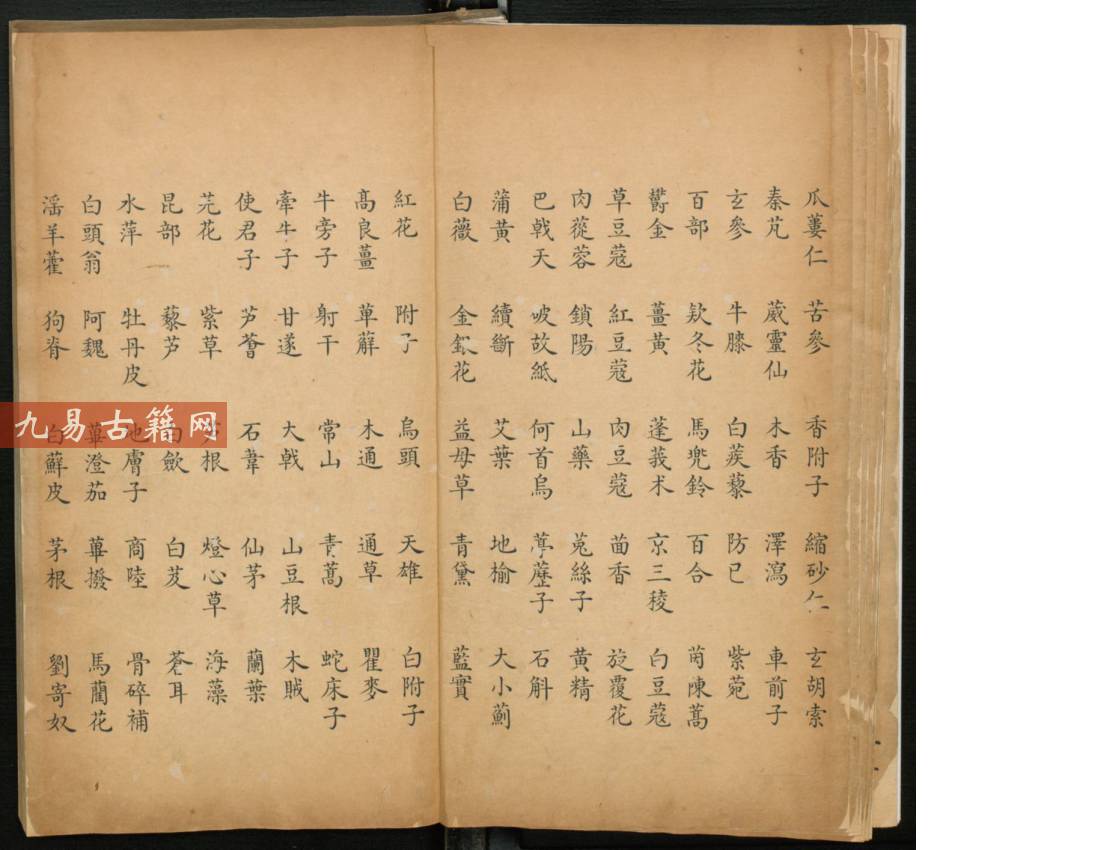 瓜蔞仁 苦參 香附子 縮砂仁 玄胡索
秦艽 葳靈仙 木香 澤瀉 車前子
玄參 牛膝 白蒺藜 防已 紫菀
百部 欵冬花 馬兜鈴 百合 茵陳蒿
欝金 薑黃 蓬莪术 京三稜 白豆蔻
草豆蔻 紅豆蔻 肉豆蔻 茴香 旋覆花
肉蓯蓉 鎖陽 山藥 菟絲子 黃精
巴戟天 破故紙 何首烏 葶藶子 石斛
蒲黃 續斷 艾葉 地榆 大小薊
白薇 金銀花 益母草 青黛 藍實
紅花 附子 烏頭 天雄 白附子
高良薑 萆薢 木通 通草 瞿麥
牛旁子 射干 常山 青蒿 蛇床子
牽牛子 甘遂 大戟 山豆根 木賊
使君子 芦薈 石韋 仙茅 蘭葉
芫花 紫草 根 燈心草 海藻
昆部 藜芦 白歛 白芨 蒼耳
水萍 牡丹皮 地膚子 商陸 骨碎補
白頭翁 阿魏 蓽澄茄 蓽撥 馬藺花
淫羊藿 狗脊 白蘚皮 茅根 劉寄奴
九易古籍网